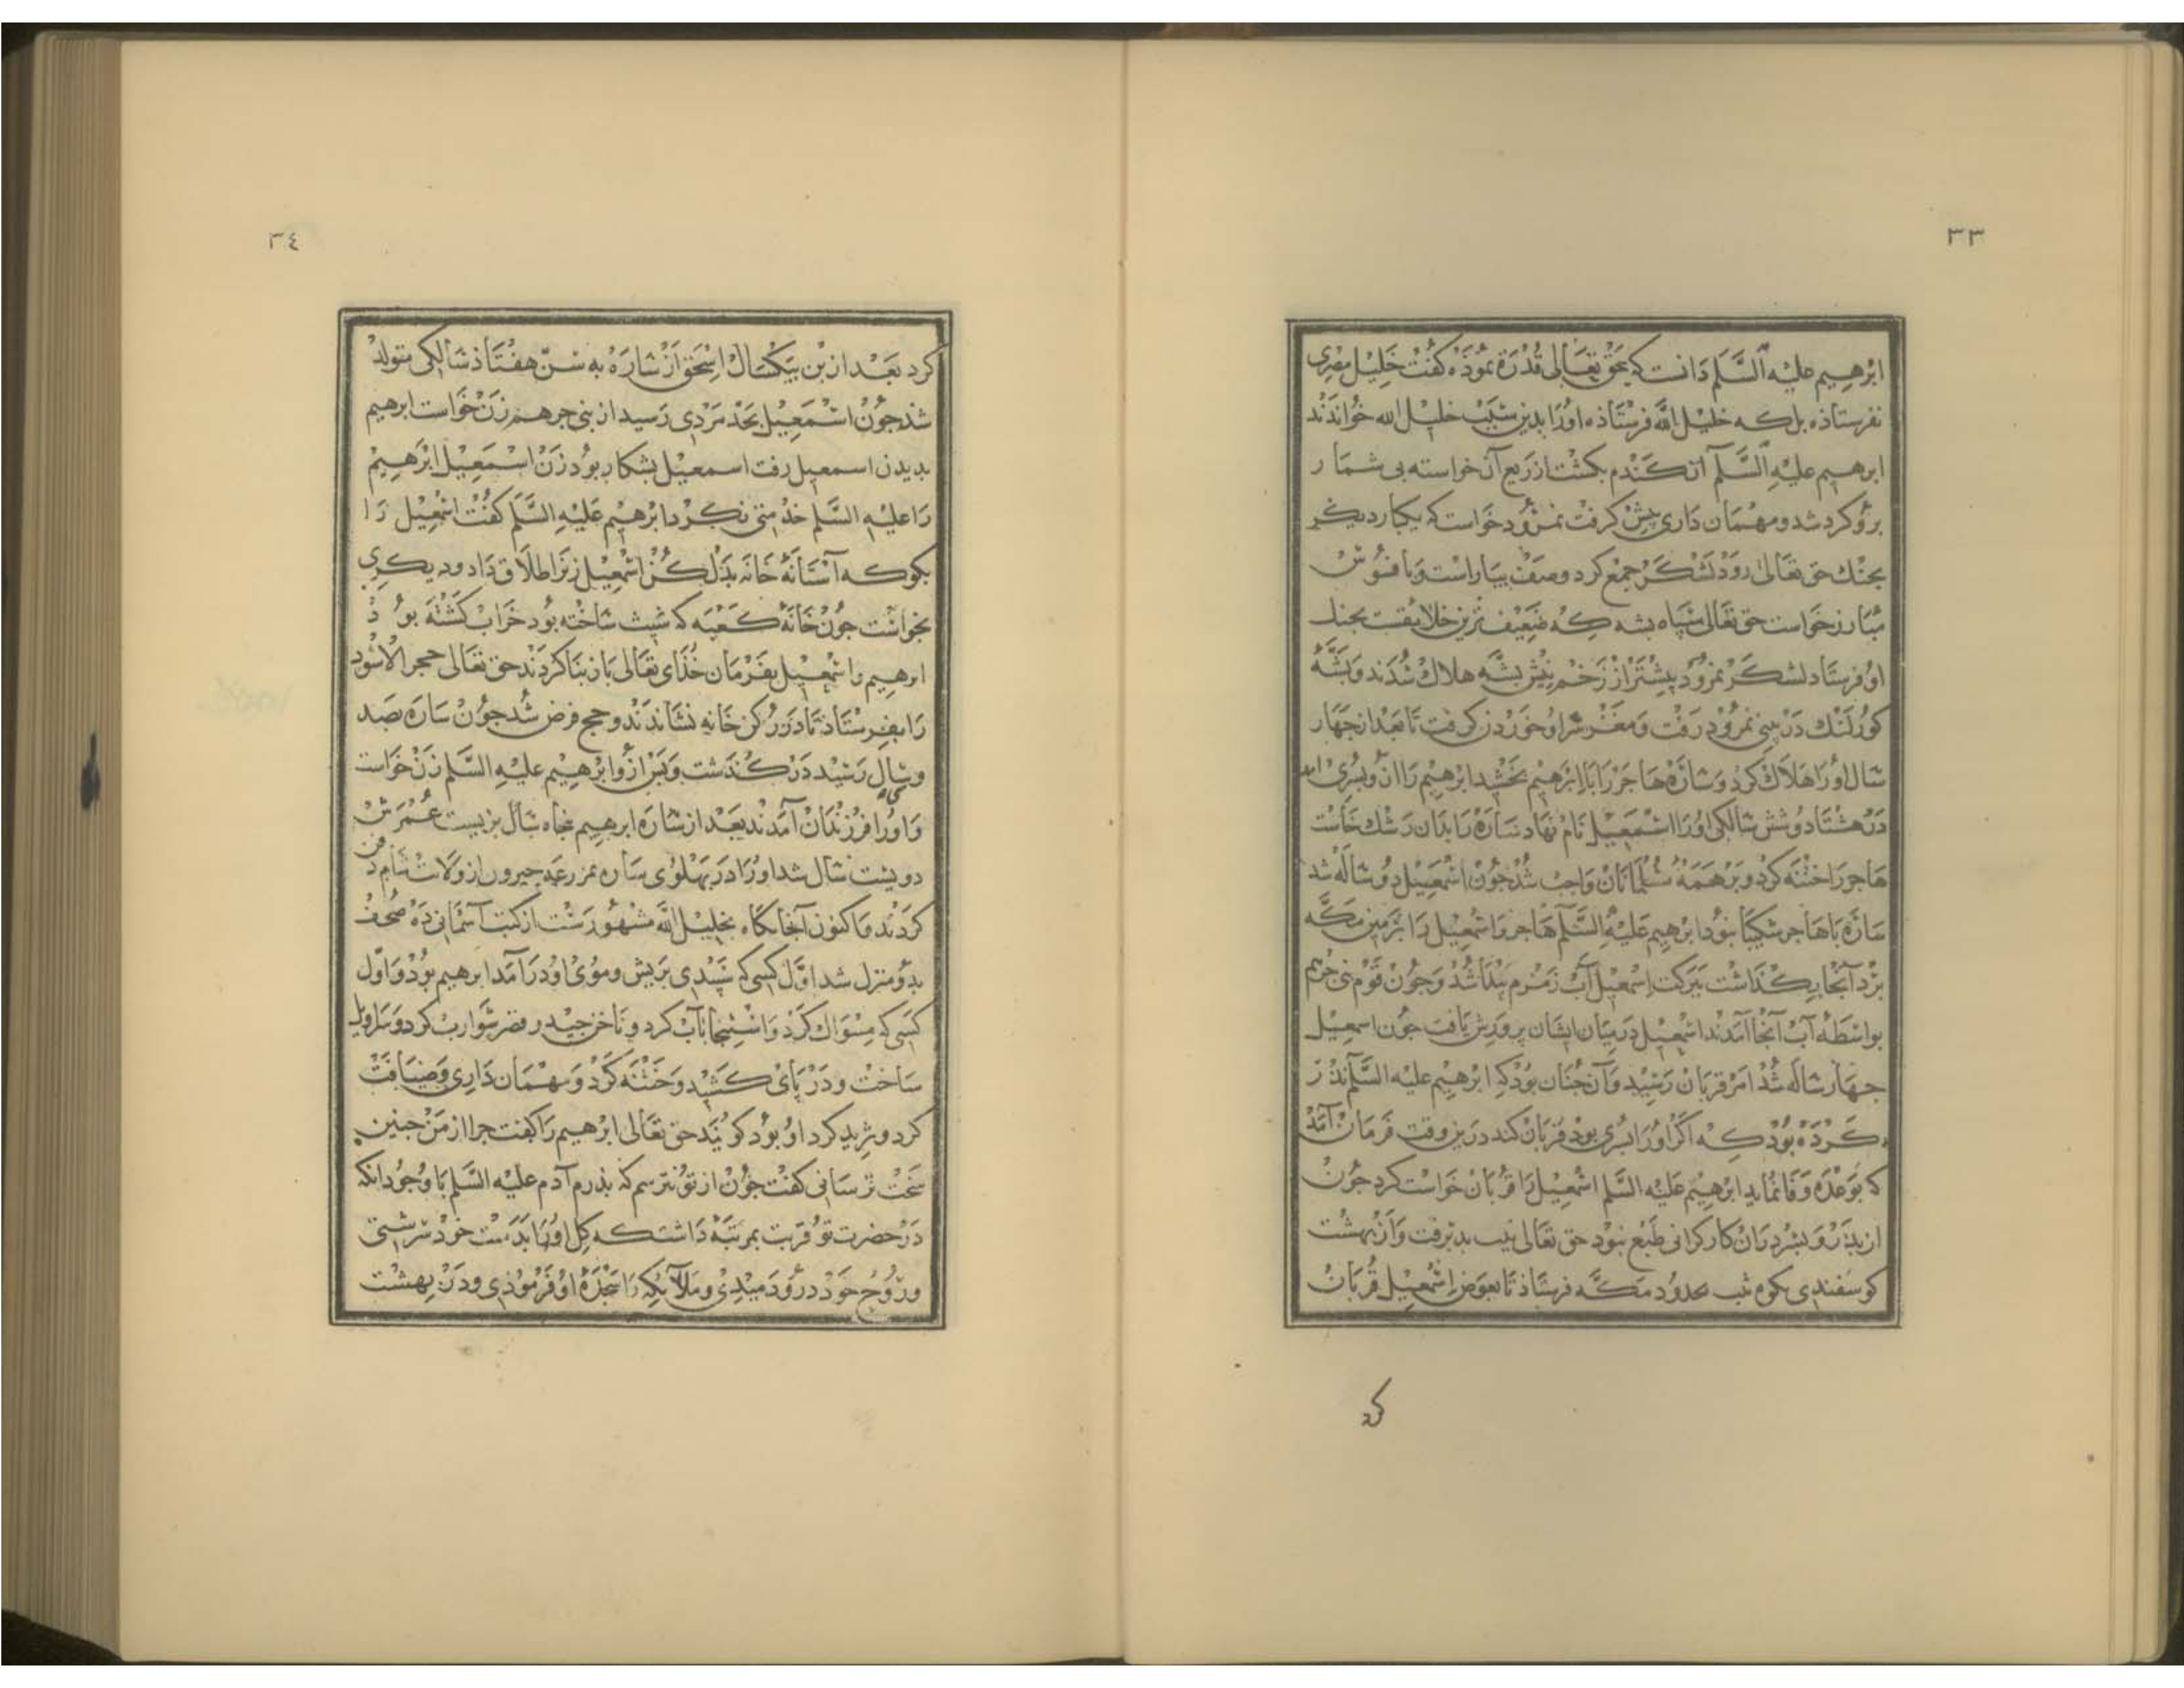 ٣٣
ابرهیم علیه السَّلم دانست که بحق تعالی قدرة نموذه کفت خلیل مصری
نفرستاذه بل که خلیل الله فرستاذه اورا بدین سبب خلیل الله خواندند
ابرهیم علیه السَّلم آن کندم بکشت از ریع آن خواسته بی شمار
برو کرد شد و مهمان داری پیش کرفت نمرود خواست که یکبار دیکر
بجنك حق تعالی روذ لشکر جمع کرد و صف بیاراست و بافسوس
مبارز خواست حق تعالی سپاه بشه که ضعیف ترین خلایقست بجنك
او فرستاد لشکر نمرود بیشتر از زخم نیش بشه هلاك شدند و بشه
کور لنك در بینی نمرود رفت و مغز سر او خوردن کرفت تا بعد از جهار
سال اورا هلاك کرد و ساره هاجر را با ابرهیم بخشید ابرهیم را از و پسری امد
در هشتاد و شش سالکی اورا اسمعیل نام نهاد ساره را بدان رشك خاست
هاجر را ختنه کرد و بر همه مسلمانان واجب شد جون اسمعیل دو ساله شد
ساره با هاجر شکیبا نبود ابرهیم علیه السَّلم هاجر و اسمعیل را بزمین مکه
برد آنجا بکذاشت ببرکت اسمعیل آب زمزم پیدا شد و جون قوم بنی جرهم
بواسطه آب آنجا آمدند اسمعیل در میان ایشان پرورش یافت جون اسمعیل
جهار ساله شد امر قربان رسید و آن جنان بود که ابرهیم علیه السلم نذر
کرده بود که اکر اورا پسری بود قربان کند درین وقت فرمان آمد
که بوعده وفا نماید ابرهیم علیه السَّلم اسمعیل را قربان خواست کرد جون
از پذر و پسر در آن کار کرانی طبع نبود حق تعالی بپذیرفت و از بهشت
کوسفندی بکوه ثبیر بحدود مکه فرستاذ تا بعوض اسمعیل قربان
کرد
٣٤
کرد بعد ازین بیکسال اسحق از ساره به سن هفتاذ سالکی متولد
شذ جون اسمعیل بحد مردی رسید از بنی جرهم زن خواست ابرهیم
بدیدن اسمعیل رفت اسمعیل بشکار بود زن اسمعیل ابرهیم
را علیه السَّلم خدمتی نکرد ابرهیم علیه السَّلم کفت اسمعیل را
بکو که آستانهٔ خانه بدل کن اسمعیل زنرا طلاق داد و دیکری
بخواست جون خانهٔ کعبه که شیث ساخته بود خراب کشته بود
ابرهیم و اسمعیل بفرمان خذای تعالی باز بنا کردند حق تعالی حجر الاسود
را بفرستاذ تا در رکن خانه نشاندند و حج فرض شد جون ساره بصد
و سی سال رسید در کذشت و پس ازو ابرهیم علیه السَّلم زن خواست
و اورا فرزندان آمدند بعد از ساره ابرهیم پنجاه سال بزیست عمرش
دویست سال شد اورا در پهلوی ساره بمزرعه جیرون از ولات شام دفن
کردند و اکنون آنجایکاه بخلیل الله مشهورست از کتب آسمانی ده صحف
بدو منزل شد اول کسی که سپیدی بریش و موی او در آمد ابرهیم بود و اول
کسی که مسواك کرد و استنجا بآب کرد و ناخن جید و قصر شوارب کرد و سراویل
ساخت و در پای کشید و ختنه کرد و مهمان داری و ضیافت
کرد و ثرید کرد او بود کویند حق تعالی ابرهیم را کفت جرا از من جنین
سخت ترسانی کفت جون از تو نترسم که پذرم آدم علیه السَّلم با وجود انکه
در حضرت تو قربت بمرتبه داشت که کل اورا بدست خود سرشتی
و روح خود درو دمیدی و ملایکه را سجدهٔ او فرموذی و در بهشت